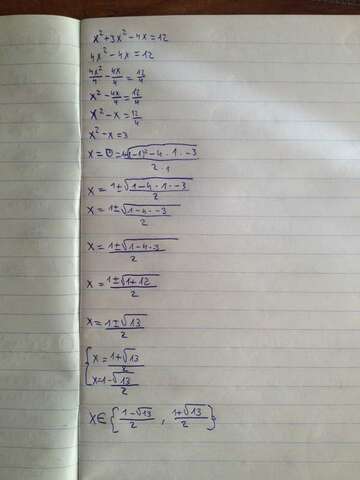 x² + 3x² - 4x = 12
4x² - 4x = 12
4x²/4 - 4x/4 = 12/4
x² - 4x/4 = 12/4
x² - x = 12/4
x² - x = 3
x = √(-1)² - 4 · 1 · -3 / 2 · 1
x = 1 ± √1 - 4 · 1 · -3 / 2
x = 1 ± √1 - 4 · -3 / 2
x = 1 ± √1 - 4 · 3 / 2
x = 1 ± √1 + 12 / 2
x = 1 ± √13 / 2
{ x = 1 + √13 / 2
x = 1 - √13 / 2
x ∈ { 1 - √13 / 2 , 1 + √13 / 2 }